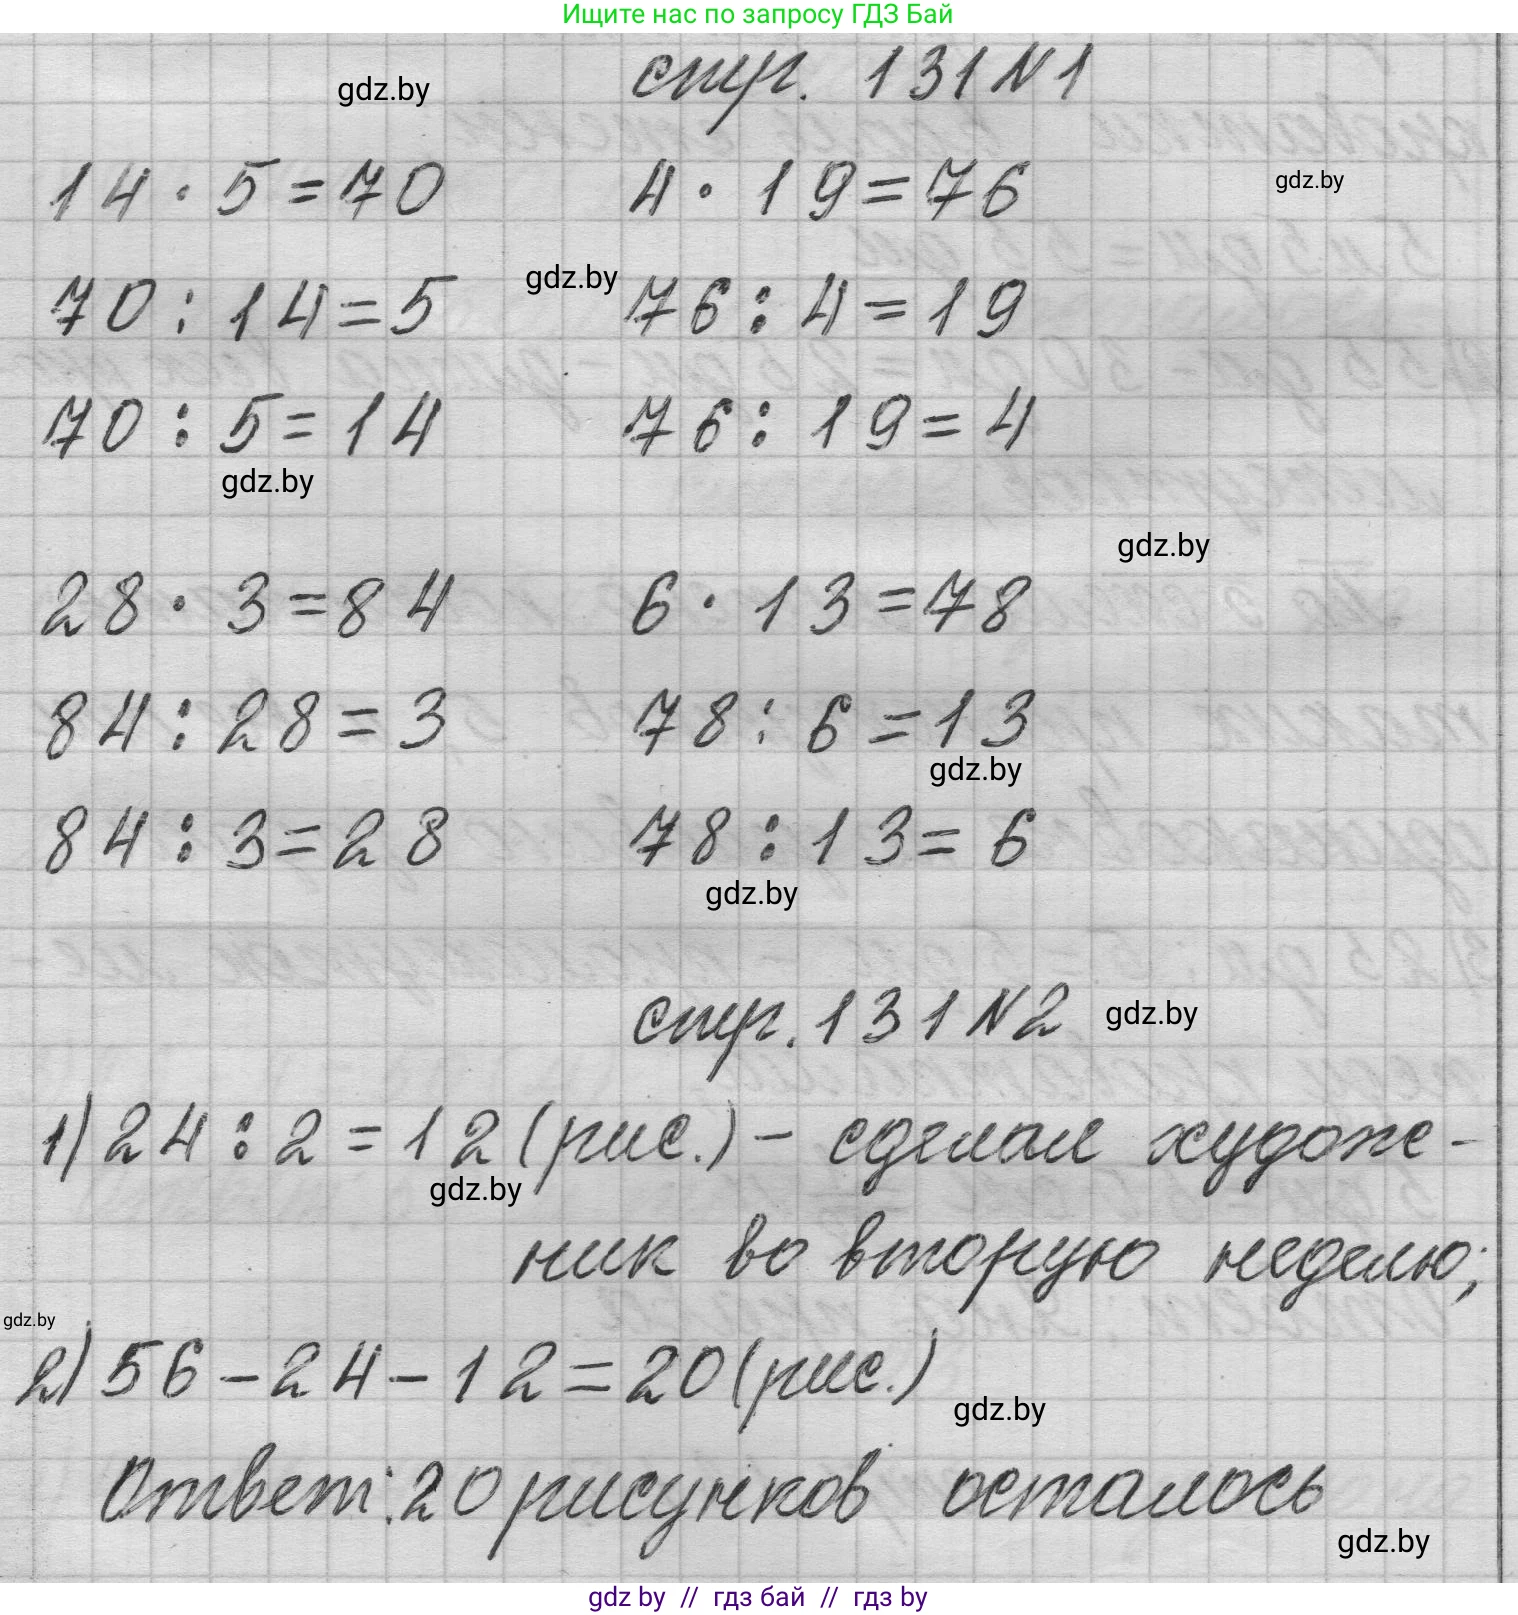 Ищите нас по запросу ГДЗ Бай
стр. 131 N1
gdz.by
14 · 5 = 70 4 · 19 = 76
gdz.by
70 : 14 = 5 76 : 4 = 19
gdz.by
70 : 5 = 14 76 : 19 = 4
gdz.by
gdz.by
28 · 3 = 84 6 · 13 = 78
84 : 28 = 3 78 : 6 = 13
gdz.by
84 : 3 = 28 78 : 13 = 6
gdz.by
стр. 131 N2
gdz.by
1) 24 : 2 = 12 (рис.) – сделал худож-
gdz.by
ник во вторую неделю;
gdz.by
2) 56 – 24 – 12 = 20 (рис.)
gdz.by
Ответ: 20 рисунков осталось
gdz.by
gdz by // гдз бай // гдз by